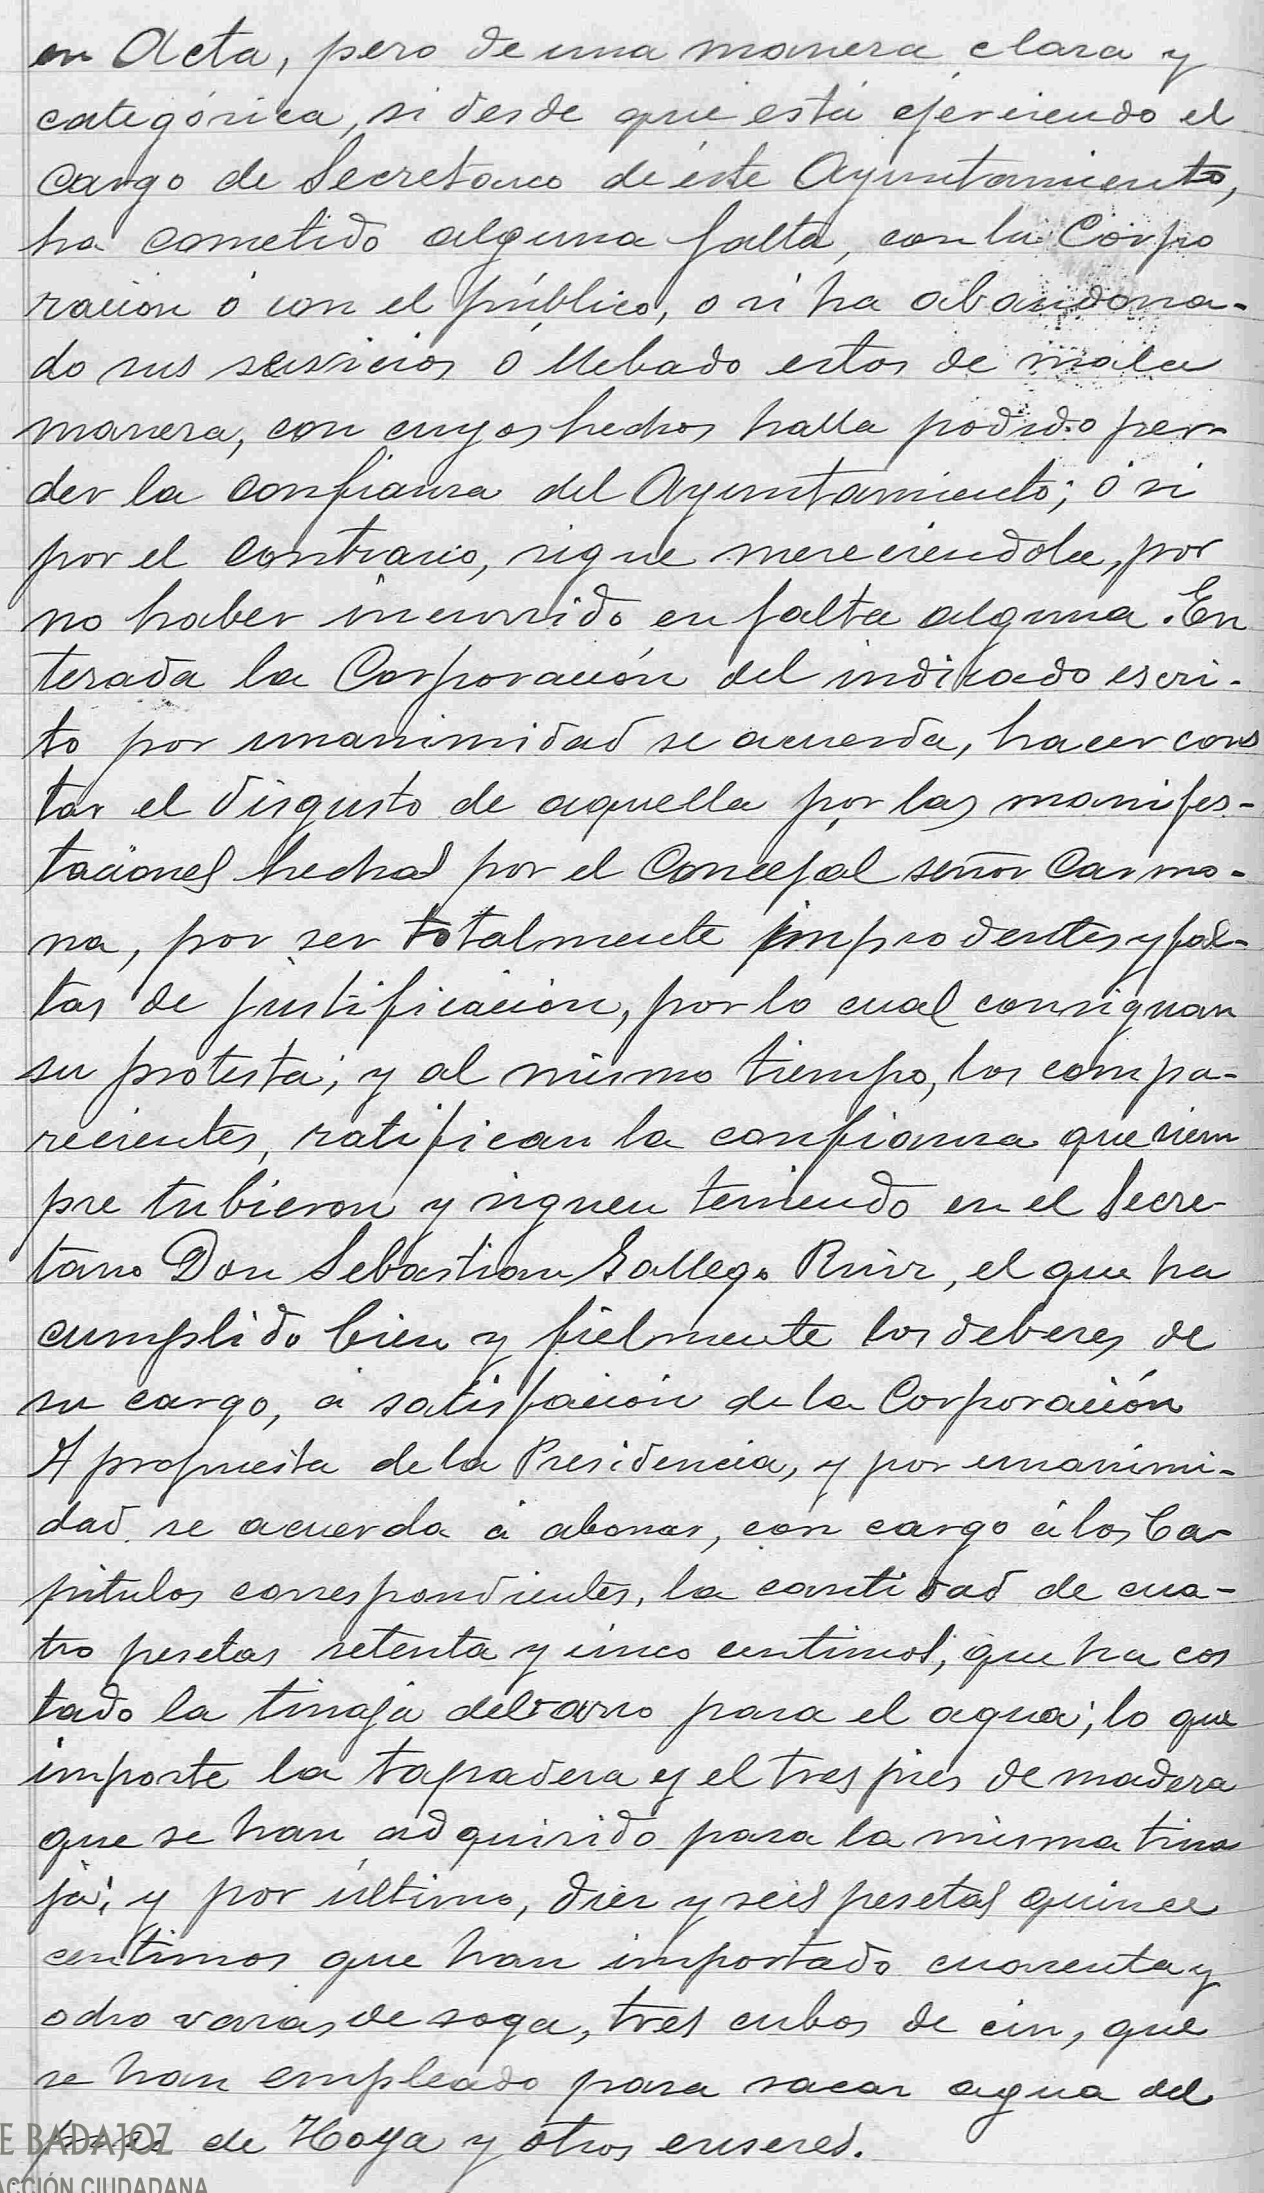 en Acta, pero de una manera clara y
categórica, si desde que está ejerciendo el
cargo de Secretario de éste Ayuntamiento,
ha cometido alguna falta, con la Corpo
ración ó con el público, o si ha abandona-
do sus servicios ó llebado estos de mala
manera, con cuyos hechos halla podido per-
der la confianza del Ayuntamiento; ó si
por el contrario, sigue mereciendola, por
no haber incurrido en falta alguna. En
terada la Corporación del indicado escri-
to por unanimidad se acuerda, hacer cons
tar el disgusto de aquella por las manifes-
taciones hechas por el Concejal señor Carmo-
na, por ser totalmente improdentes y fal-
tas de justificación, por lo cual consignan
su protesta; y al mismo tiempo, los compa-
recientes, ratifican la confianza que siem
pre tubieron y siguen teniendo en el Secre-
tario Don Sebastian Gallego Ruiz, el que ha
cumplido bien y fielmente los deberes de
su cargo, á satisfación de la Corporación
A propuesta de la Presidencia, y por unanimi-
dad se acuerda á abonar, con cargo á los Ca-
pitulos correspondientes, la cantidad de cua-
tro pesetas setenta y cinco centimos, que ha cos
tado la tinaja del barro para el agua; lo que
importe la tapadera y el tres pies de madera
que se han adquirido para la misma tina
ja; y por último, diez y seis pesetas quince
centimos que han importado cuarenta y
ocho varas de soga, tres cubos de cin, que
se han empleado para sacar agua del
E BADAJOZ de Hoya y otros enseres.
ACCIÓN CIUDADANA